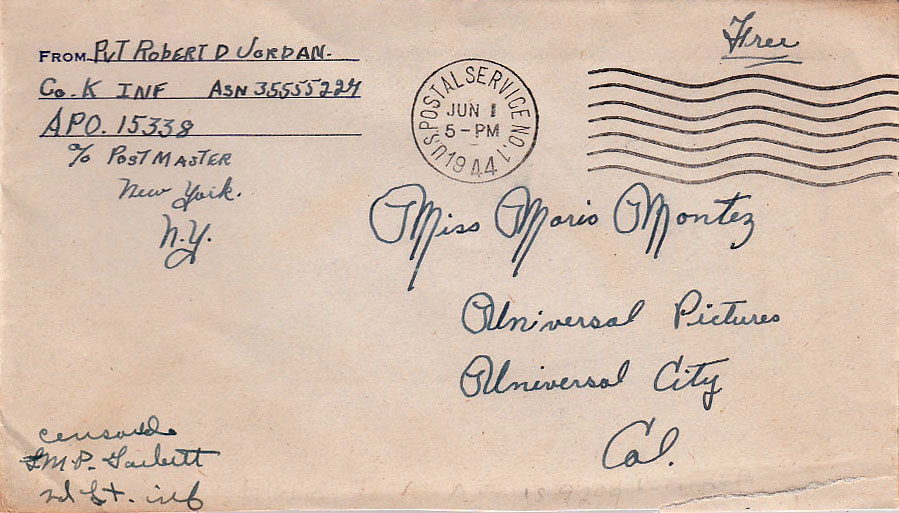 FROM PVT ROBERT D JORDAN.
Co. K INF ASN 35555224
APO. 15338
% POSTMASTER
New York.
N.Y.
Free
U.S. POSTAL SERVICE NO. 1
JUN 1
5-PM
1944
Miss Maria Montez
Universal Pictures
Universal City
Cal.
censored
M.P.
2nd Lt. inf